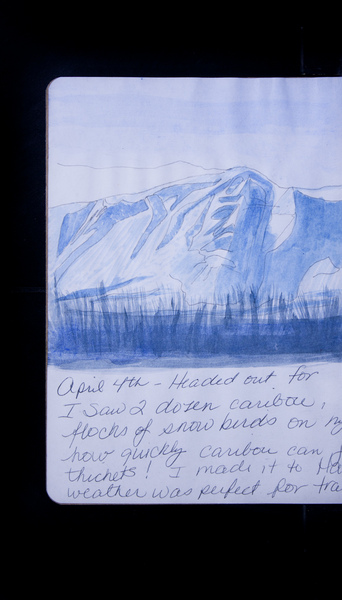 April 4th - Headed out for
I saw 2 dozen caribou,
flocks of snow birds on my
how quickly caribou can
thickets! I made it to
weather was perfect for